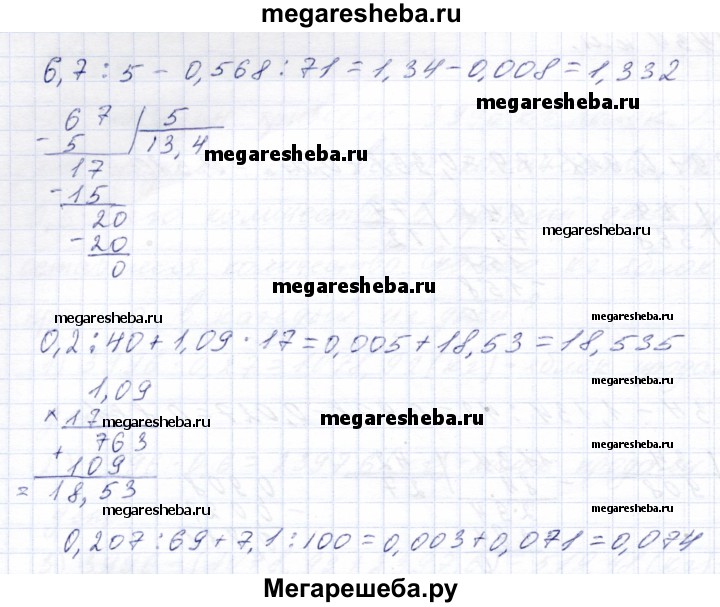 megaresheba.ru
6,7 : 5 - 0,568 : 71 = 1,34 - 0,008 = 1,332
megaresheba.ru
67 | 5
- 5 | 13,4
megaresheba.ru
17
- 15
20
megaresheba.ru
- 20
0
megaresheba.ru
megaresheba.ru
megaresheba.ru
0,2 : 40 + 1,09 · 17 = 0,005 + 18,53 = 18,535
1,09
× 17
megaresheba.ru
megaresheba.ru
+ 763
109
megaresheba.ru
= 18,53
megaresheba.ru
megaresheba.ru
0,207 : 69 + 7,1 : 100 = 0,003 + 0,071 = 0,074
Мегарешеба.ру